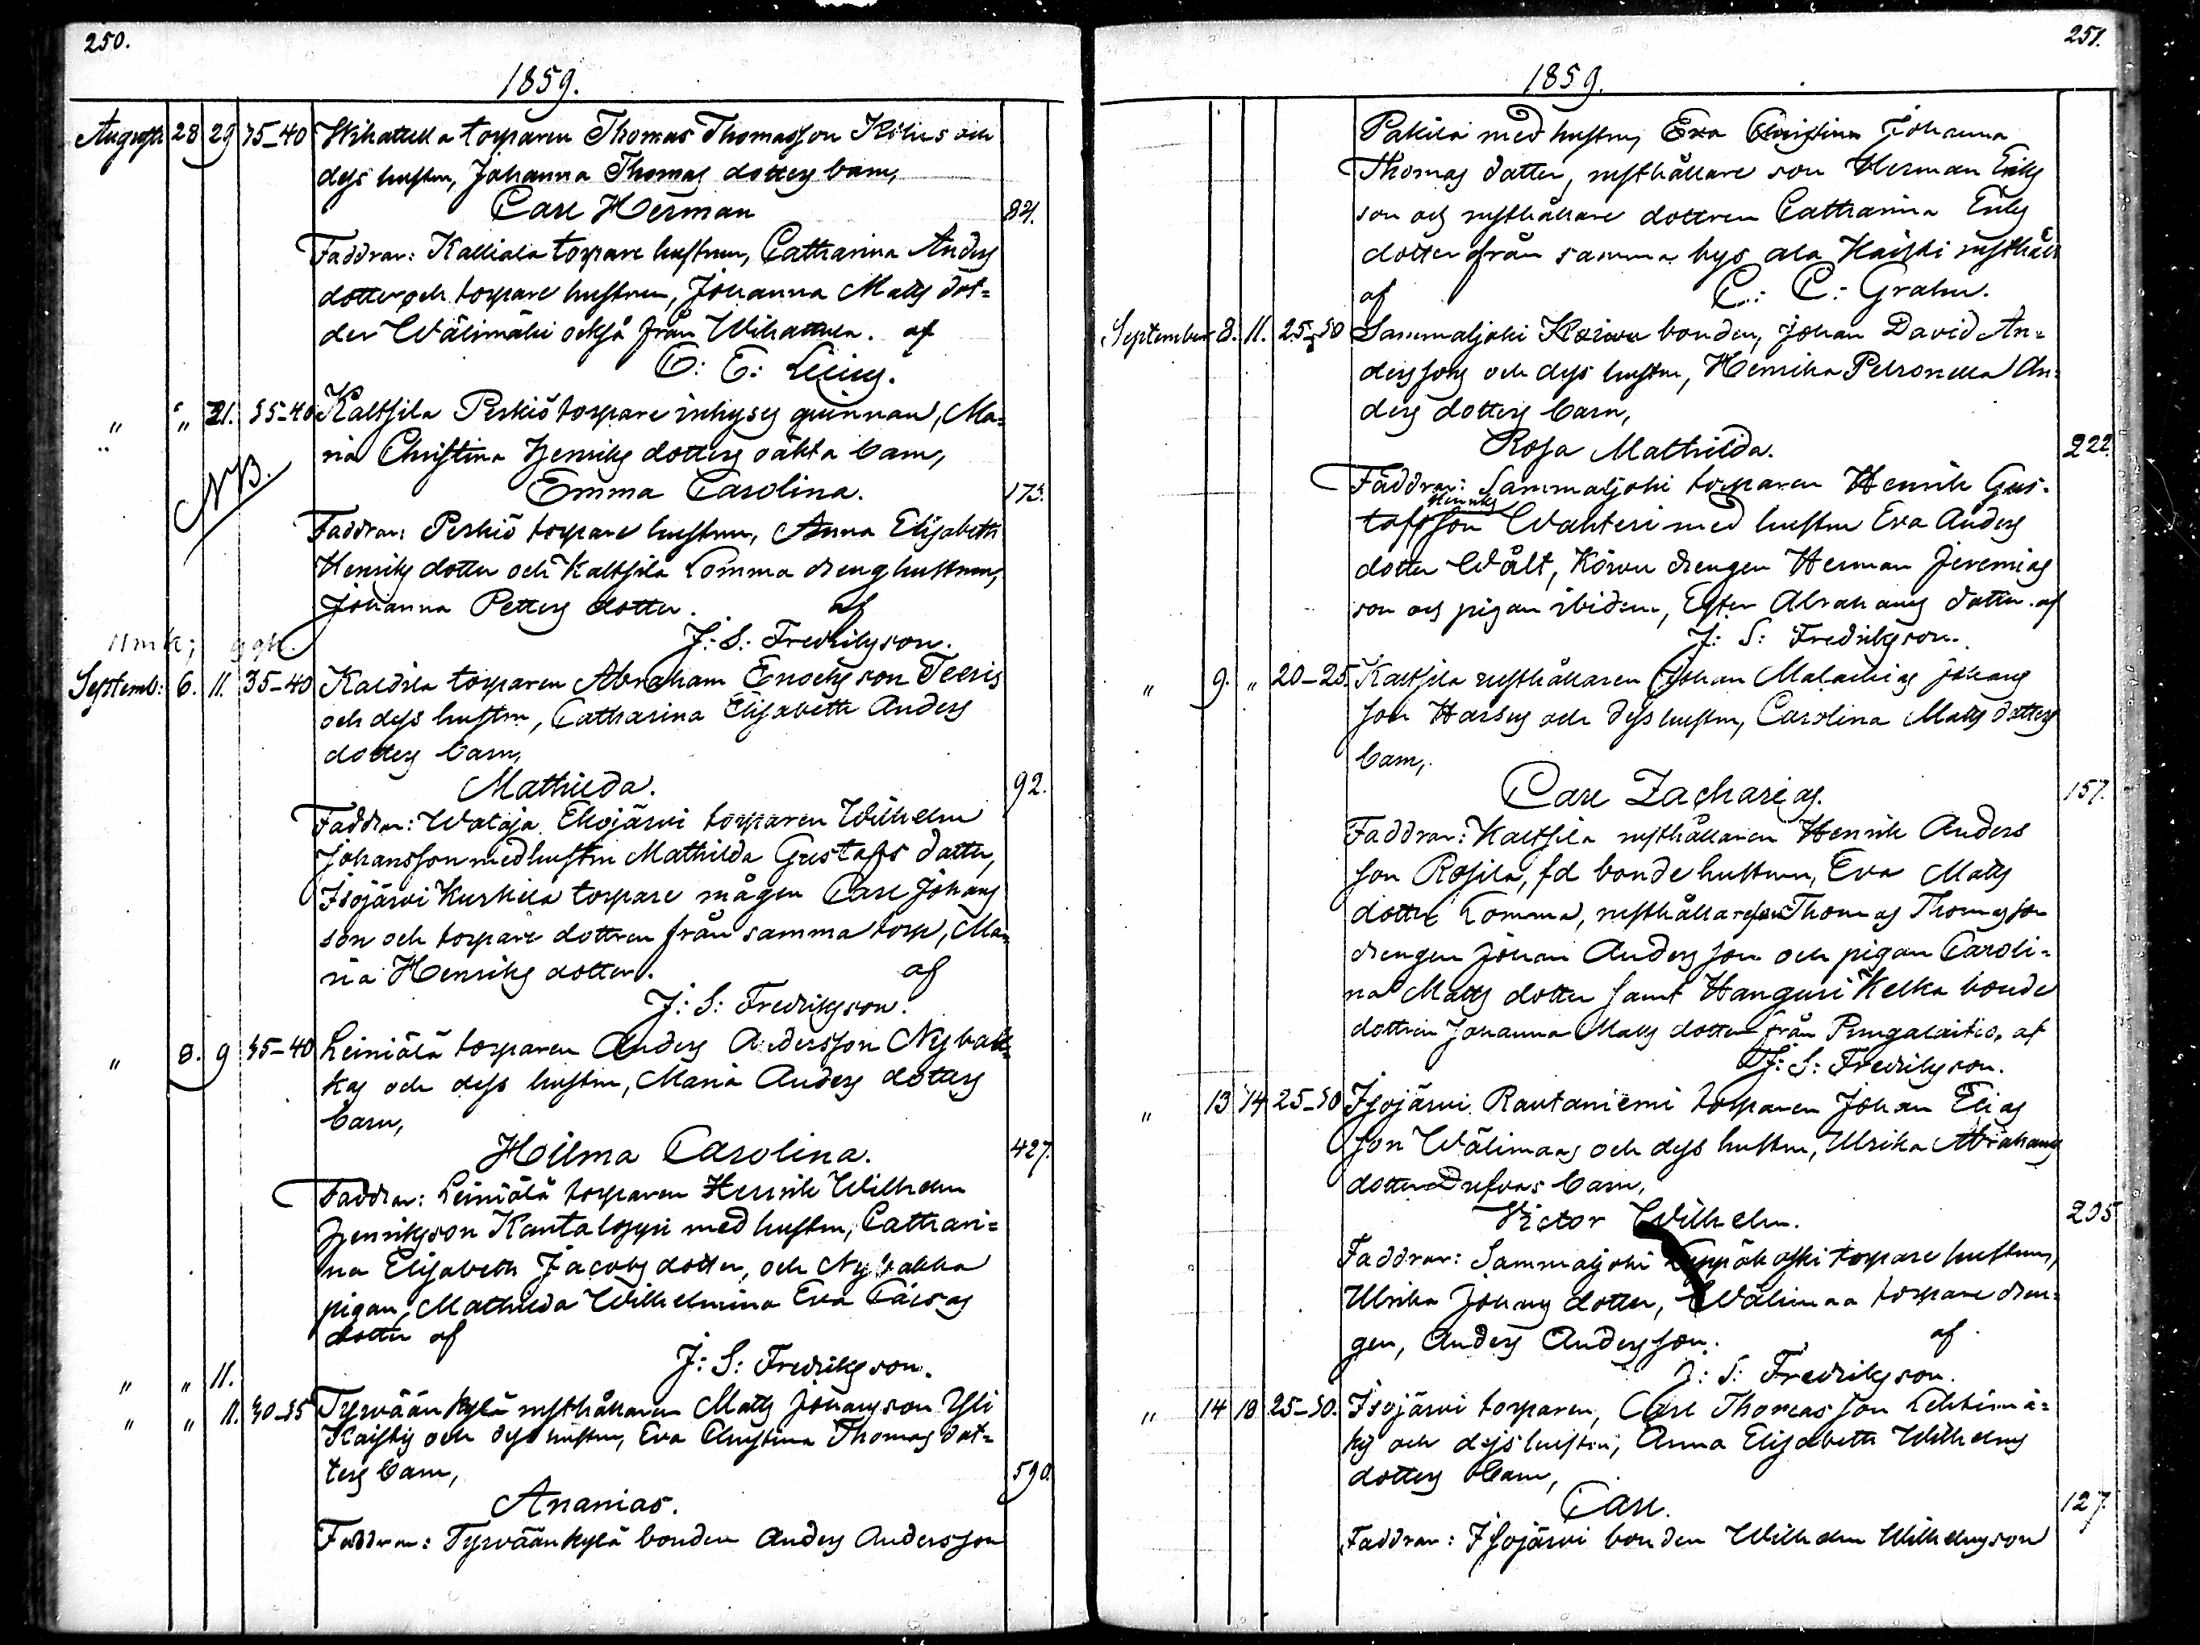 250.
1859.
Augusti 28 29 35-40 Wihattula torparen Thomas Thomasson Kölius och
dess hustru, Johanna Thomas dotters barn,
Carl Herman 82.
Faddrar: Kalliala torpare hustrun, Catharina Anders
dotter och torpare hustrun, Johanna Matts dot=
der Wälimäki också från Wihattula. af
C: E: Lilius.
" " 31. 35-40 Kaltsila Peskiö torpare inhyses quinnan, Ma=
ria Christina Henriks dotters oäkta barn,
NB.
Emma Carolina. 173.
Faddrar: Peskiö torpare hustrun, Anna Elisabeth
Henriks dotter och Kaltsila Lomma dreng hustrun,
Johanna Petters dotter. af
J: S: Fredrikson.
Septemb: 6. 11. 35-40 Kaldila torparen Abraham Enochs son Teeris
och dess hustru, Catharina Elisabeth Anders
dotters barn,
Mathilda. 92.
Faddrar: Wataja Ekojärvi torparen Wilhelm
Johansson med hustru Mathilda Gustafs dotter,
Isojärvi Kurkila torpare mågen Carl Johans
son och torpare dottren från samma torp, Ma=
ria Henriks dotter. af
J: S: Fredrikson.
" 8. 9 35-40 Leiniälä torparen Anders Andersson Nybak=
kas och dess hustru, Maria Anders dotters
barn,
Hilma Carolina. 427.
Faddrar: Leiniälä torparen Henrik Wilhelm
Henrikson Kantaloppi med hustru, Cathari=
na Elisabeth Jacobs dotter, och Nybakka
pigan, Mathilda Wilhelmina Eva
dotter af
J: S: Fredrikson.
" " 11.
" " 11. 30-35 Tyrväänkylä rusthållaren Matts Johansson Yli
Kaiskis och dess hustru, Eva Christina Thomas dot=
ters barn,
Ananias. 590.
Faddrar: Tyrväänkylä bonden Anders Andersson
251.
1859.
Pakila med hustru, Eva Christina Johanna
Thomas dotter, rusthållare son Herman Eriks
son och rusthållare dottren Catharina Eriks
dotter från samma bys ala Kaiski rusthåll
af C: C: Grahn.
September 8. 11. 25-30 Sammaljoki Körwu bonden, Johan David An=
derssons och dess hustru, Henrika Petronella An=
ders dotters barn,
Rosa Mathilda. 222.
Faddrar: Sammaljoki torparen Henrik Gus=
Henriks
tafsson Wahteri med hustru Eva Anders
dotter Wält, Körwu drengen Herman Jeremias
son och pigan ibidem, Ester Abrahams dotter. af
J: S: Fredrikson.
" 9. " 20-25. Kaltsila rusthållaren Johan Malachias Johans
son Harsus och dess hustru, Carolina Matts dotters
barn,
Carl Zacharias. 157.
Faddrar: Kaltsila rusthållaren Henrik Anders
son Rosila, fd bonde hustrun, Eva Matts
dotter Lomma, rusthållareson Thomas Thomasson
drengen Johan Andersson och pigan Caroli=
na Matts dotter samt Hanguri Kelka bonde
dottren Johanna Matts dotter från Pungalaitio, af
J: S: Fredrikson.
" 13 14 25-30 Isojärvi Rautaniemi torparen Johan Elias
son Wälimaas och dess hustru, Ulrika Abrahams
dotter Dufvas barn,
Victor Wilhelm. 205
Faddrar: Sammaljoki Leppäkoski torpare hustrun,
Ulrika Johans dotter, Wälimaa torpare dren=
gen, Anders Andersson. af
J: S: Fredrikson.
" 14 18 25-30. Isojärvi torparen, Carl Thomas son Lehtimä=
kis och dess hustru, Anna Elisabeth Wilhelms
dotters barn,
Carl. 127.
Faddrar: Isojärvi bonden Wilhelm Wilhelmsson